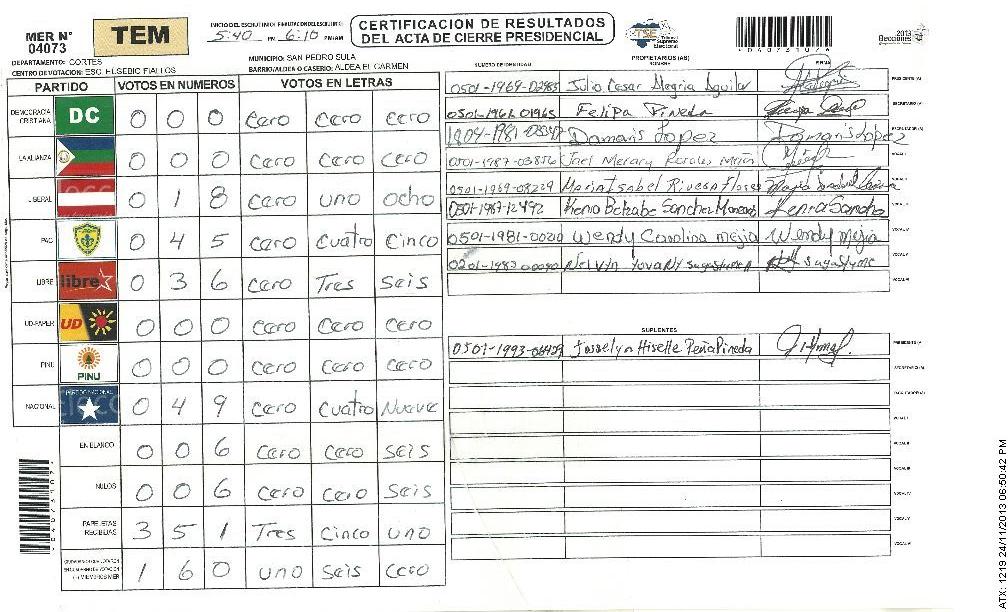 MER N° 04073
TEM
INICIO DEL ESCRUTINIO 5:40 PM 6:10 PM/AM
CERTIFICACION DE RESULTADOS
DEL ACTA DE CIERRE PRESIDENCIAL
TSE Tribunal Supremo Electoral
2013 Elecciones
DEPARTAMENTO: CORTES
MUNICIPIO: SAN PEDRO SULA
CENTRO DE VOTACION: ESC. EUSEBIO FIALLOS
BARRIO/ALDEA O CASERIO: ALDEA EL CARMEN
PARTIDO VOTOS EN NUMEROS VOTOS EN LETRAS
DEMOCRACIA CRISTIANA DC 0 0 0 cero cero cero
LA ALIANZA 0 0 0 cero cero cero
LIBERAL 0 1 8 cero uno ocho
PAC 0 4 5 cero cuatro cinco
LIBRE libre 0 3 6 cero Tres seis
UD-FAPER UD 0 0 0 cero cero cero
PINU PINU 0 0 0 cero cero cero
NACIONAL 0 4 9 cero cuatro Nueve
EN BLANCO 0 0 6 cero cero seis
NULOS 0 0 6 cero cero seis
PAPELETAS RECIBIDAS 3 5 1 Tres cinco uno
1 6 0 uno seis cero
PROPIETARIOS (AS)
NUMERO DE IDENTIDAD NOMBRE FIRMA
0501-1969-02985 Julio Cesar Alegria Aguilar PRESIDENTE (A)
0501-1961-01965 Felipa Pineda SECRETARIO (A)
Damaris Lopez Damaris Lopez ESCRUTADOR (A)
0501-1987-03856 Joel Merary Rosales VOCAL I
0501-1969-08229 Maria Isabel Rivera Flores VOCAL II
0501-1987-12492 Kenia Betzabe Sanchez Kenia Sanchez VOCAL III
0501-1981-00210 Wendy Carolina mejia Wendy Mejia VOCAL IV
Nelvyn Yovany VOCAL V
VOCAL VI
SUPLENTES
0501-1993-06429 Josselyn Hiselle Peña Pineda PRESIDENTE (A)
SECRETARIO (A)
ESCRUTADOR (A)
VOCAL I
VOCAL II
VOCAL III
VOCAL IV
VOCAL V
VOCAL VI
ATX: 1219 24/11/2013 06:50:42 PM